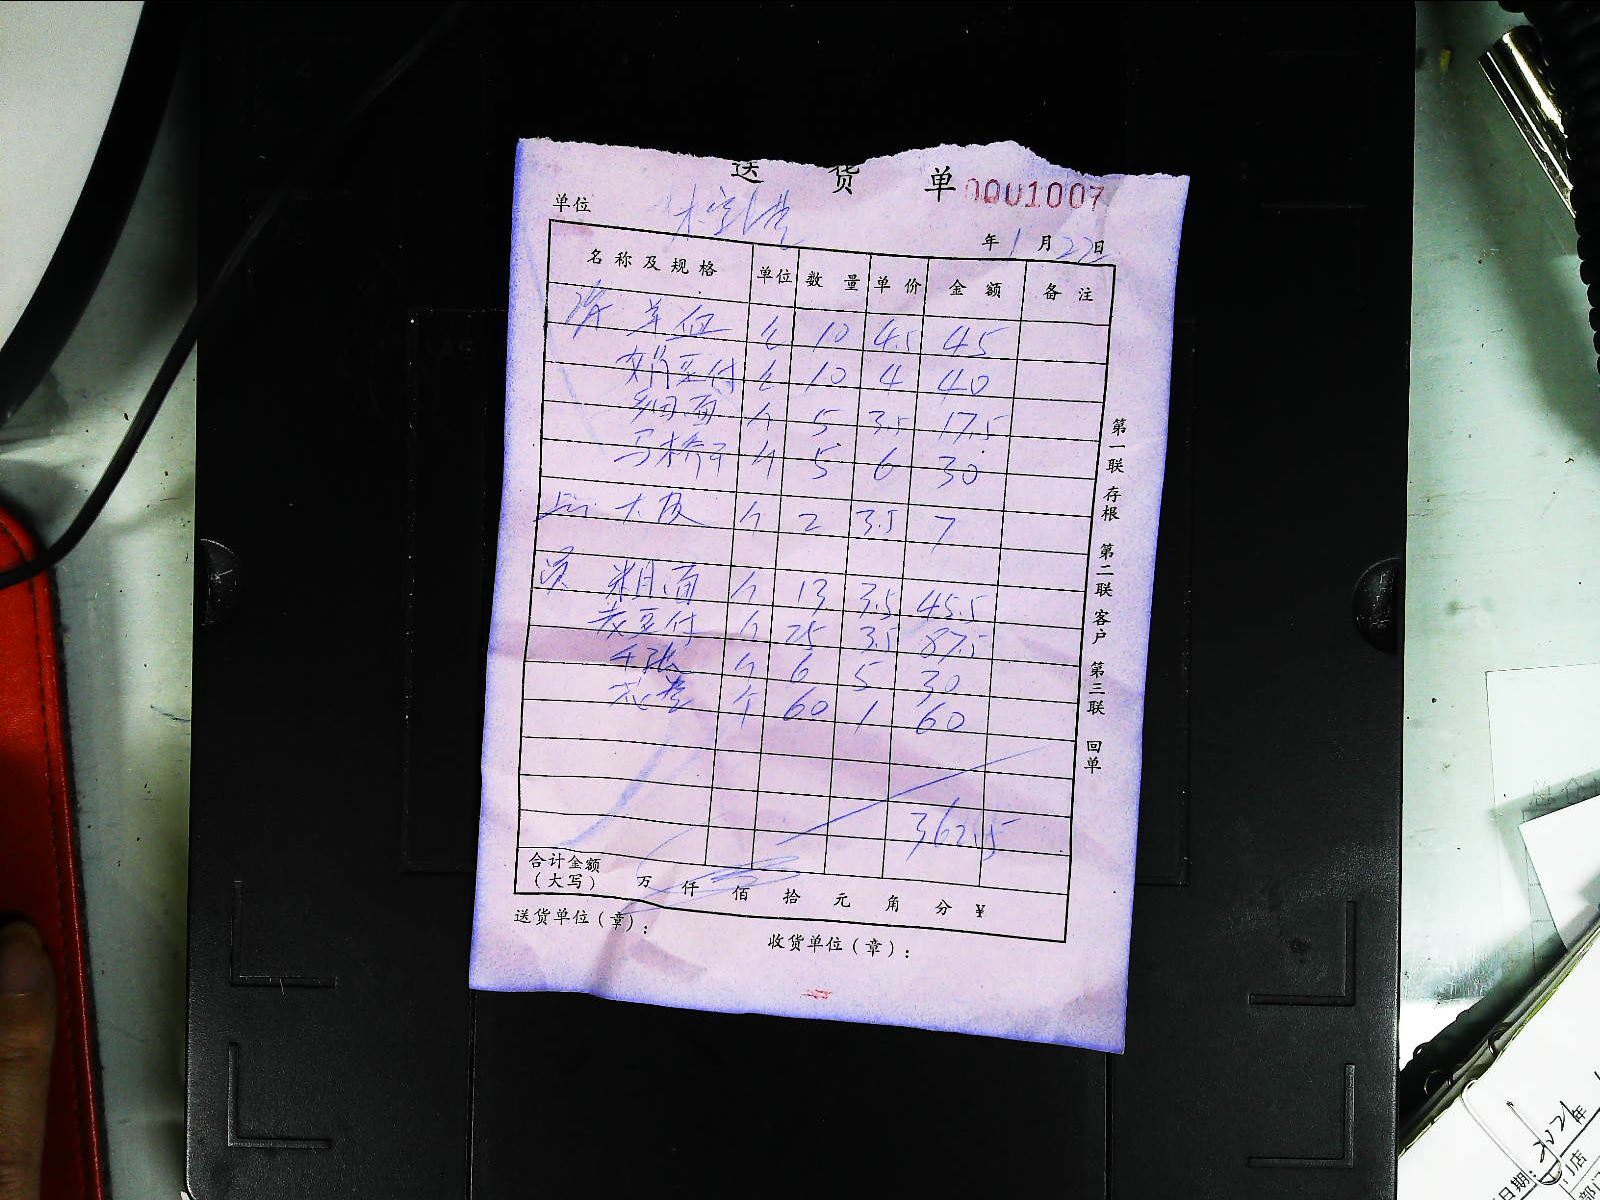 送 货 单 0001007
单位
年 1 月 22 日
名称及规格 单位 数量 单价 金额 备注
羊血 10 4.5 45
内旨豆付 10 4 40
细面 个 5 3.5 17.5
马桥干 个 5 6 30
大灰 个 2 3.5 7
粗面 个 13 3.5 45.5
老豆付 个 25 3.5 87.5
千张 个 6 5 30
个 60 1 60
362.5
合计金额
(大写) 万 仟 佰 拾 元 角 分 ¥
送货单位(章):
收货单位(章):
第一联 存根 第二联 客户 第三联 回单
2021年
日期:
门店